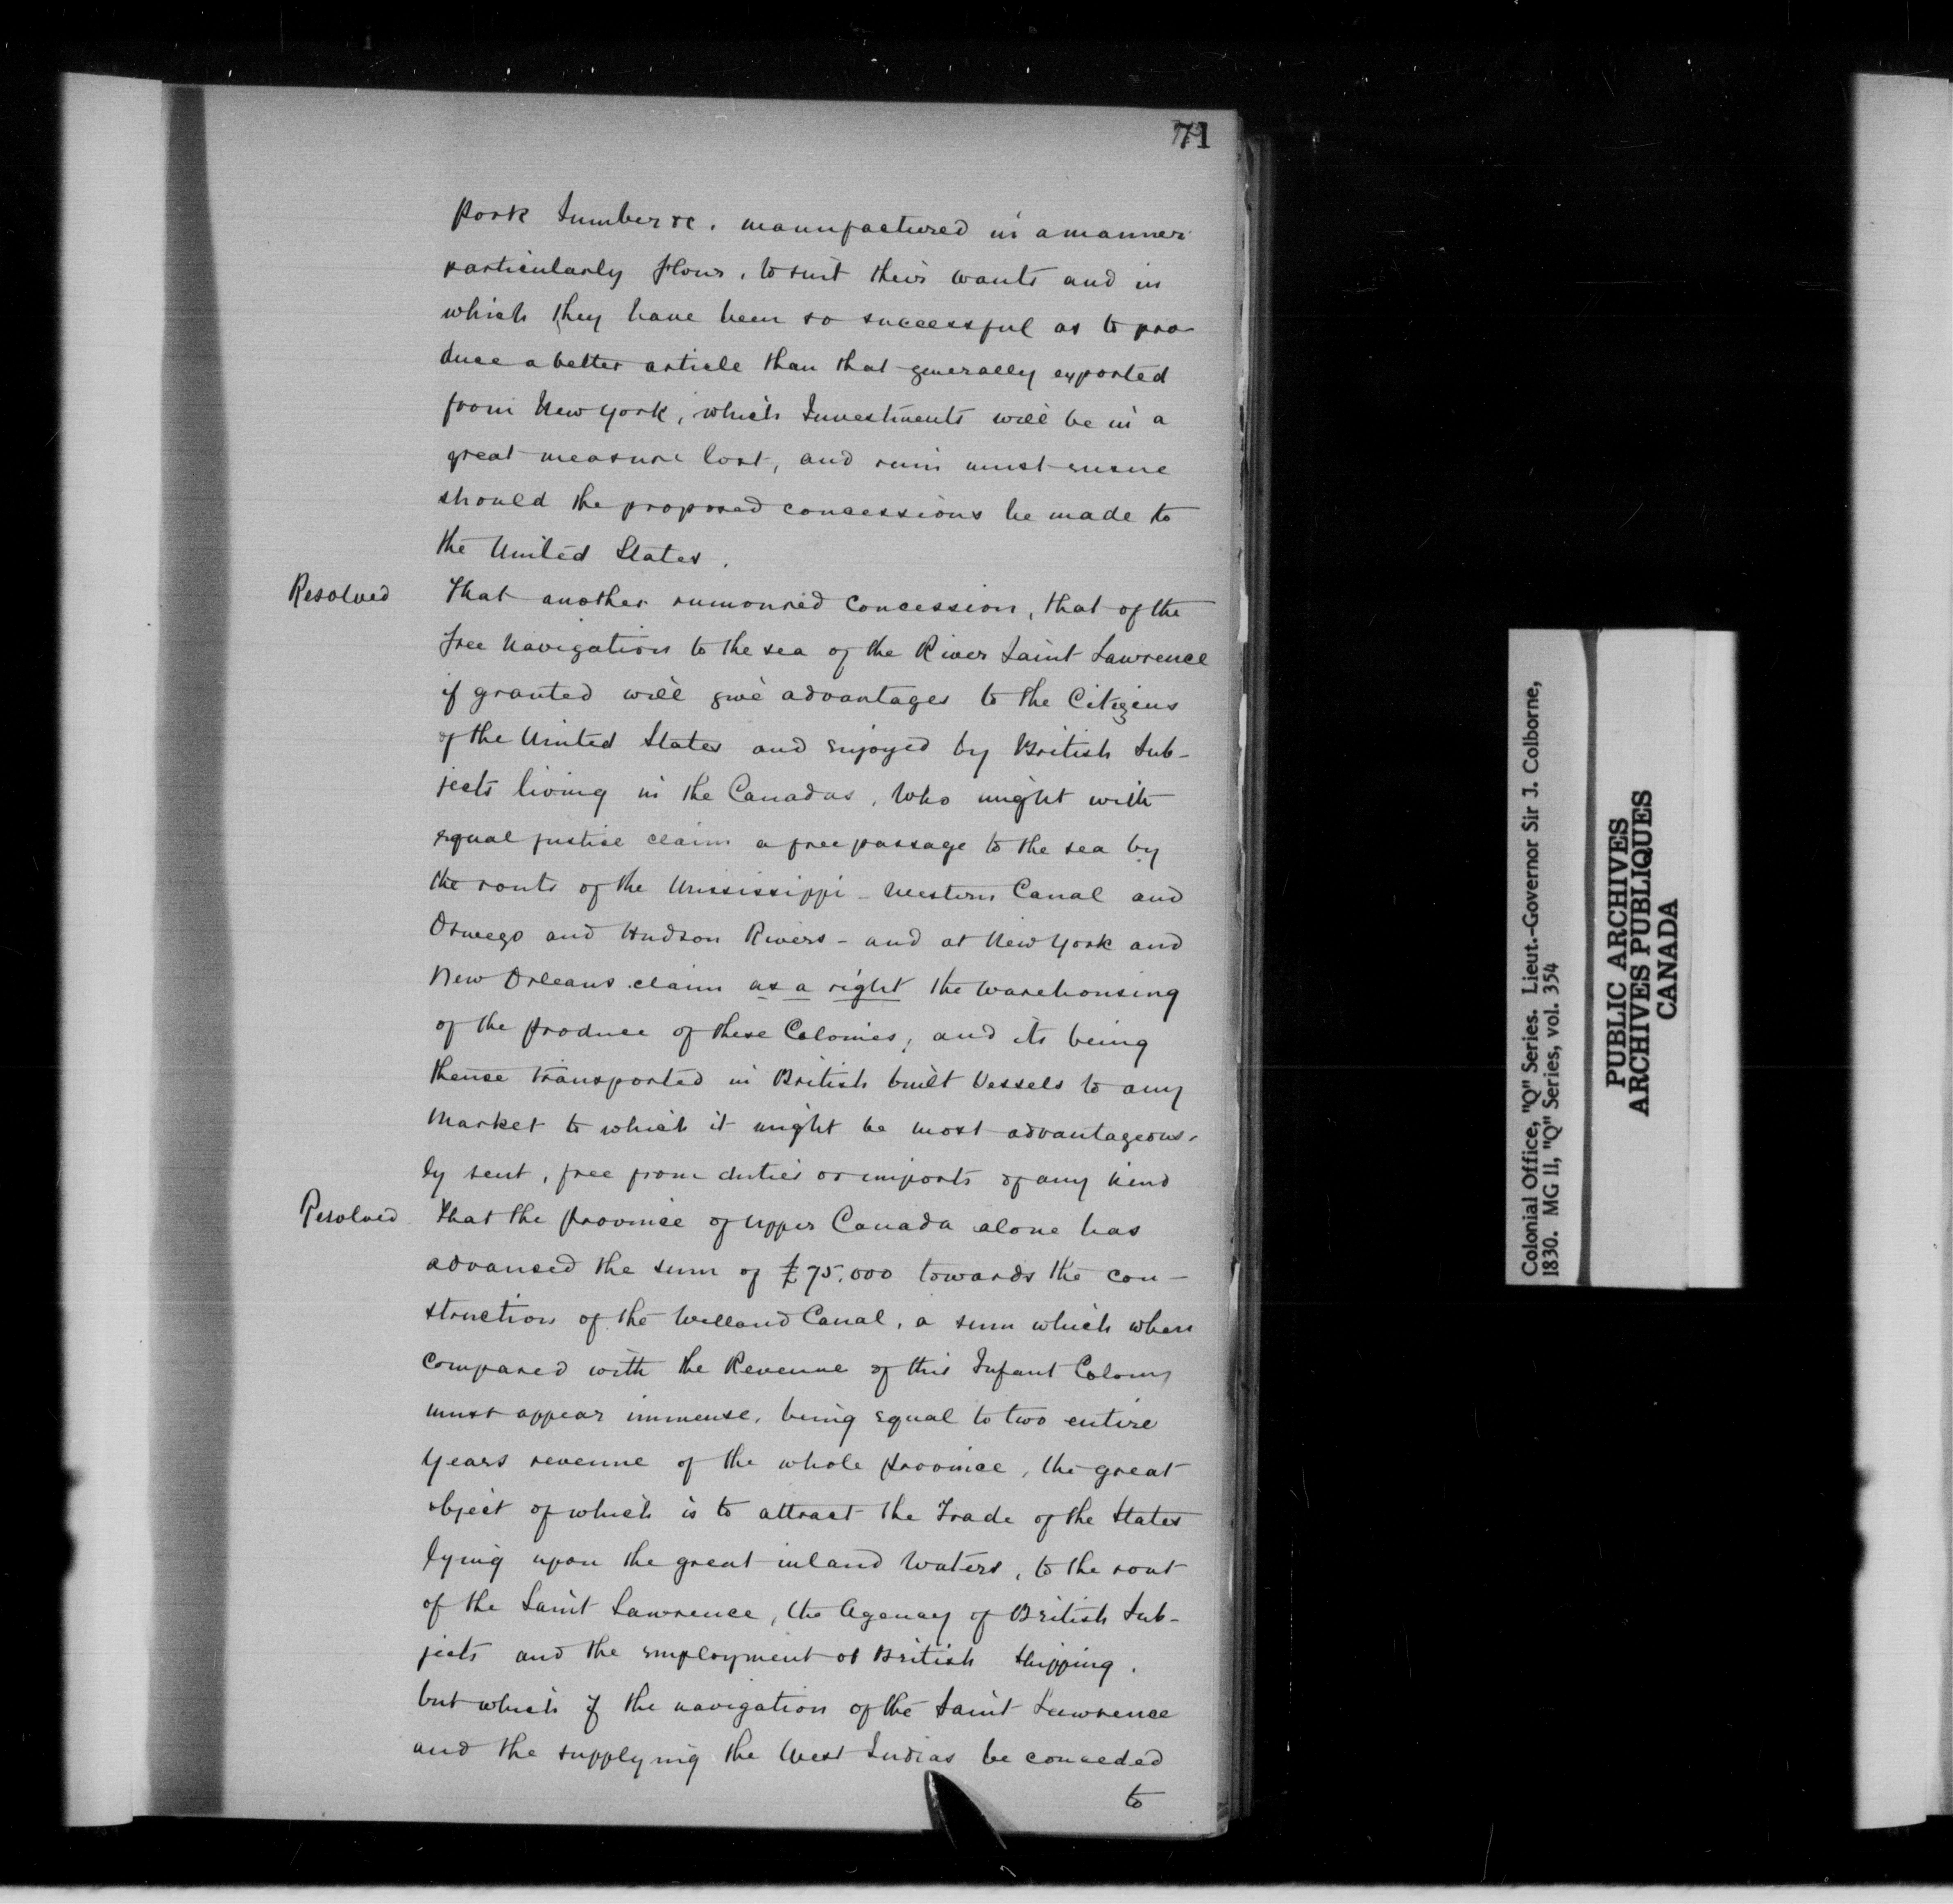 71
Pork Lumber &c. manufactured in a manner
particularly flour, to suit their wants and in
which they have been so successful as to pro-
duce a better article than that generally exported
from New York, which Investments will be in a
great measure lost, and ruin must ensue
should the proposed concessions be made to
the United States.
Resolved That another rumoured Concession, that of the
free Navigation to the sea of the River Saint Lawrence
if granted will give advantages to the Citizens
of the United States and enjoyed by British Sub-
jects living in the Canadas, who might with
equal justice claim a free passage to the sea by
the route of the Mississippi - Western Canal and
Oswego and Hudson Rivers - and at New York and
New Orleans claim as a right the warehousing
of the produce of these Colonies, and its being
thence transported in British built Vessels to any
Market to which it might be most advantageous-
ly sent, free from duties or imposts of any kind
Resolved That the Province of Upper Canada alone has
advanced the sum of £75.000 towards the con-
struction of the Welland Canal, a sum which when
compared with the Revenue of this Infant Colony
must appear immense, being equal to two entire
years revenue of the whole Province, the great
object of which is to attract the Trade of the States
lying upon the great inland Waters, to the rout
of the Saint Lawrence, the Agency of British Sub-
jects and the employment of British Shipping.
but which if the navigation of the Saint Lawrence
and the supplying the West Indias be conceded
to
Colonial Office, "Q" Series. Lieut.-Governor Sir J. Colborne,
1830. MG 11, "Q" Series, vol. 354
PUBLIC ARCHIVES
ARCHIVES PUBLIQUES
CANADA